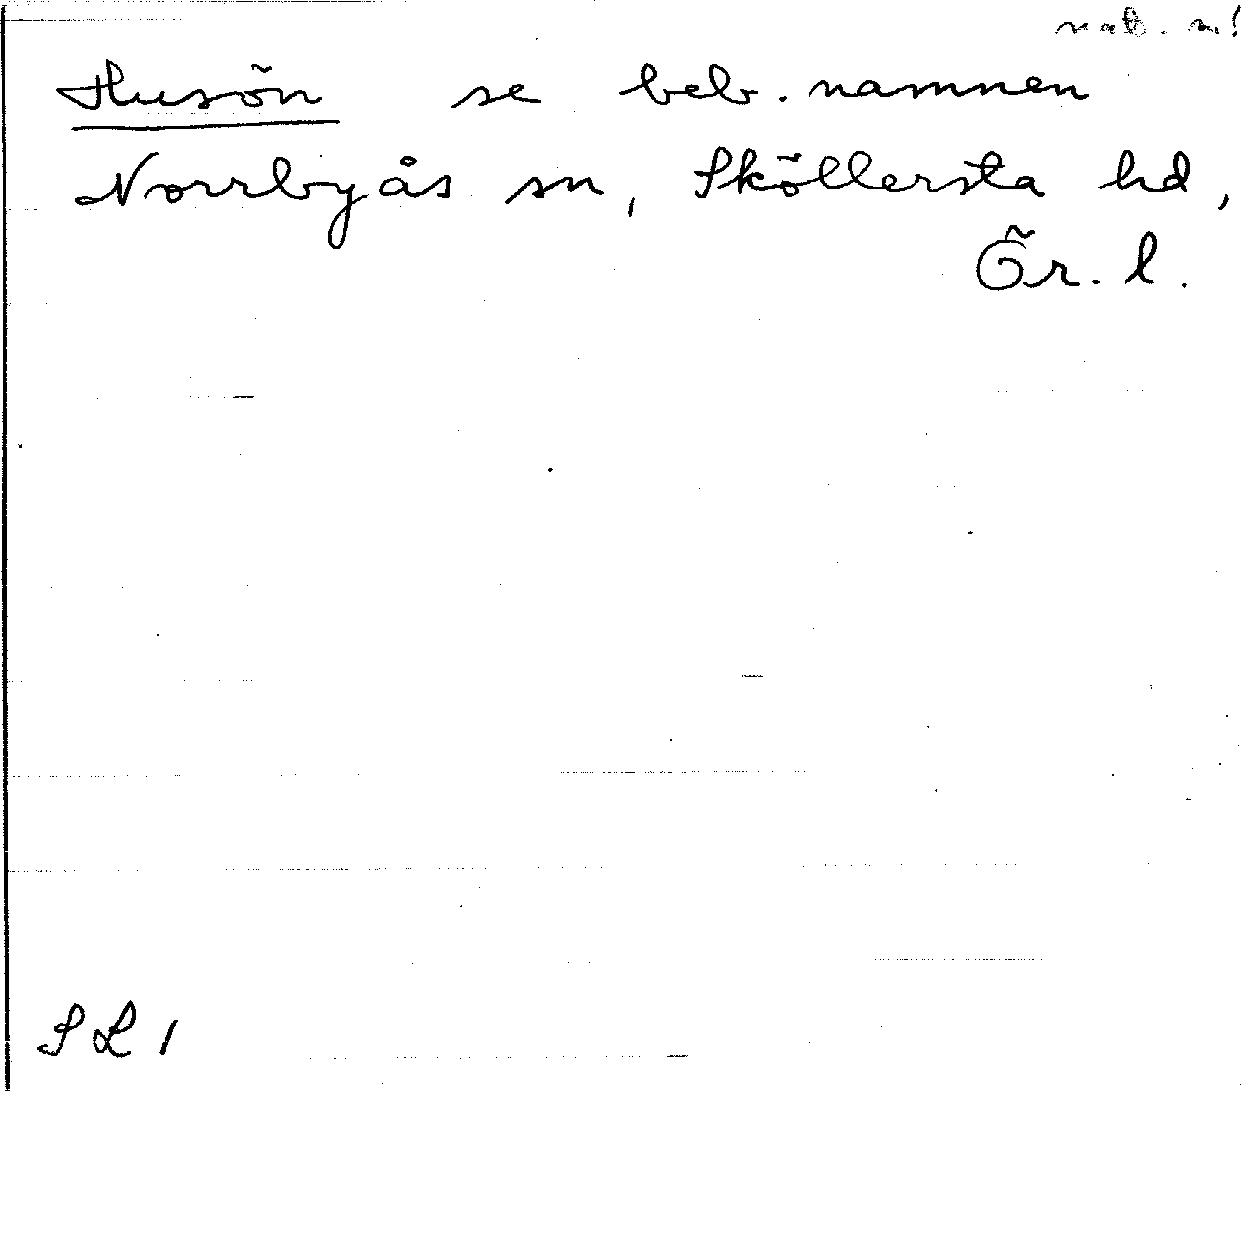 nat. n!
Husön se beb. namnen
Norrbyås sn, Sköllersta hd,
Ör. l.
SL 1